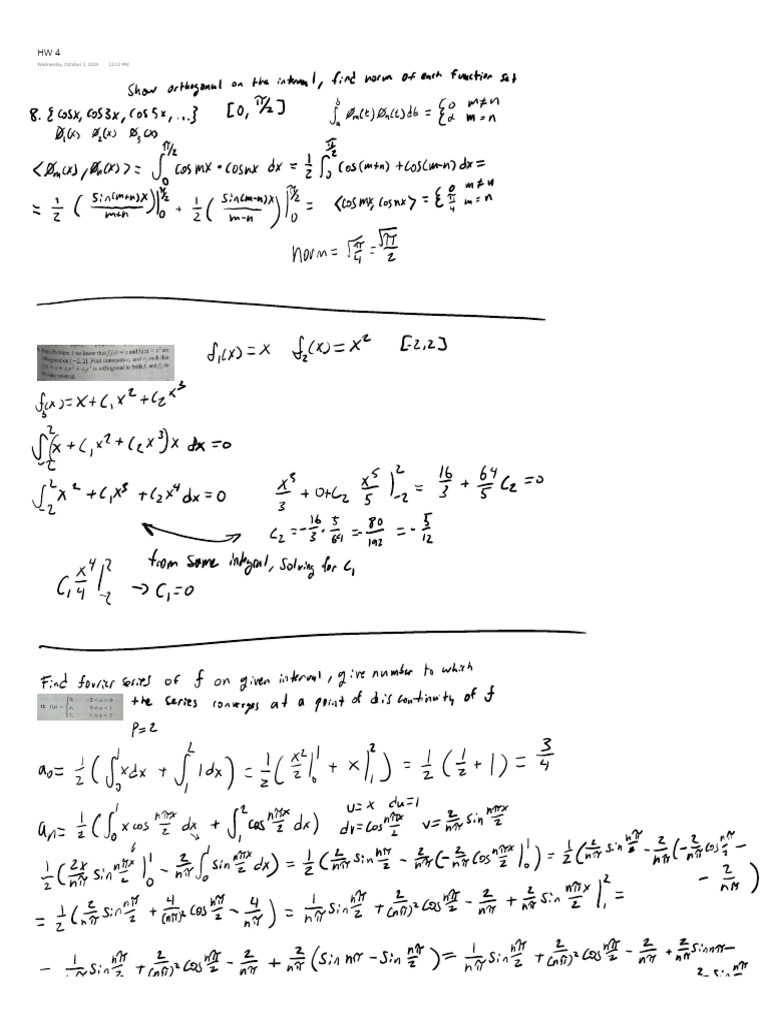 HW 4
Wednesday, October 2, 2020 12:12 PM
Show orthogonal on the interval, find norm of each function set
8. {cosx, cos3x, cos5x, ...} [0, π/2] ∫_a^b Ø_m(t) Ø_n(t) dt = {0 m≠n
{α m=n
Ø_1(x) Ø_2(x) Ø_3(x)
<Ø_m(x), Ø_n(x)> = ∫_0^{π/2} cosmx · cosnx dx = 1/2 ∫_0^{π/2} cos(m+n) + cos(m-n) dx =
= 1/2 (sin(m+n)x / m+n)|_0^{π/2} + 1/2 (sin(m-n)x / m-n)|_0^{π/2} = <cosmx, cosnx> = {0 m≠n
{π/4 m=n
norm = √(π/4) = √π/2
From Problem 1 we know that f₁(x) = x and f₂(x) = x² are
orthogonal on [-2, 2]. Find constants c₁ and c₂ such that
f₃(x) = x + c₁x² + c₂x³ is orthogonal to both f₁ and f₂ on
the same interval.
f_1(x) = x f_2(x) = x² [-2,2]
f_3(x) = x + c_1x² + c_2x³
∫_{-2}^2 (x + c_1x² + c_2x³)x dx = 0
∫_{-2}^2 x² + c_1x³ + c_2x⁴ dx = 0 x³/3 + 0 + c_2 x⁵/5 |_{-2}^2 = 16/3 + 64/5 c_2 = 0
c_2 = -16/3 · 5/64 = -80/192 = -5/12
from same integral, solving for c_1
c_1 x⁴/4 |_{-2}^2 → c_1 = 0
Find fourier series of f on given interval, give number to which
the series converges at a point of discontinuity of f
12. f(x) = {0, -2 < x < 0
{x, 0 ≤ x < 1
{1, 1 ≤ x < 2
P = 2
a_0 = 1/2 (∫_0^1 xdx + ∫_1^2 1dx) = 1/2 (x²/2 |_0^1 + x|_1^2) = 1/2 (1/2 + 1) = 3/4
a_n = 1/2 (∫_0^1 x cos nπx/2 dx + ∫_1^2 cos nπx/2 dx) u = x du = 1
dv = cos nπx/2 v = 2/nπ sin nπx/2
1/2 (2x/nπ sin nπx/2 |_0^1 - 2/nπ ∫_0^1 sin nπx/2 dx) = 1/2 (2/nπ sin nπ/2 - 2/nπ (-2/nπ cos nπx/2 |_0^1) = 1/2 (2/nπ sin nπ/2 - 2/nπ (-2/nπ cos nπ/2 -
- 2/nπ
= 1/2 (2/nπ sin nπ/2 + 4/(nπ)² cos nπ/2 - 4/nπ) = 1/nπ sin nπ/2 + 2/(nπ)² cos nπ/2 - 2/nπ + 2/nπ sin nπx/2 |_1^2 =
- 1/nπ sin nπ/2 + 2/(nπ)² cos nπ/2 - 2/nπ + 2/nπ (sin nπ - sin nπ/2) = 1/nπ sin nπ/2 + 2/(nπ)² cos nπ/2 - 2/nπ + 2/nπ sin nπ -
2 sin nπ